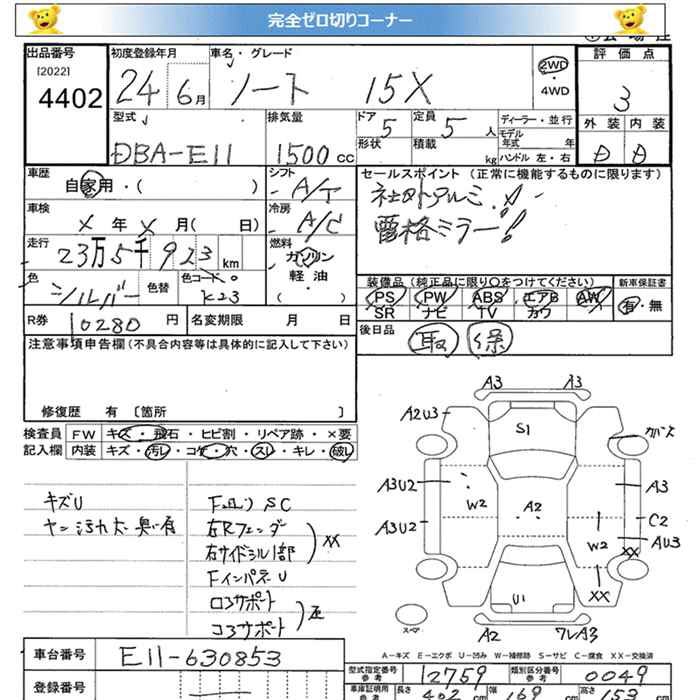 完全ゼロ切りコーナー
出品番号 初度登録年月 車名・グレード 評価点
[2022]
4402 24 6月 ノート 15X 2WD・4WD 3
型式 排気量 ドア 5 定員 5人 ディーラー・並行 外装 内装
DBA-E11 1500cc 形状 積載 kg モデル年式 年 D D
ハンドル 左・右
車歴 シフト セールスポイント(正常に機能するものに限ります)
自家用・( ) A/T 社外アルミ
車検 冷房
×年×月( 日) A/C 電格ミラー!!
走行 燃料
23万5千923km ガソリン
軽油
( )
色 色替 色コードNo
シルバー K23
装備品(純正品に限り○をつけてください) 新車保証書
PS PW ABS エアB AW 有・無
SR ナビ TV カワ
R券 10280円 名変期限 月 日 後日品 取 保
注意事項申告欄(不具合内容等は具体的に記入して下さい)
修復歴 有 〔箇所 〕
検査員 FW キズ・飛石・ヒビ割・リペア跡・×要
記入欄 内装 キズ・汚レ・コゲ・穴・スレ・キレ・破レ
キズU
F SC
右Rフェンダー
右サイドシル1部
××
FインパネU
ロアサポート
コアサポート
A3 A3
A2U3 S1
A3U2 W2 A2 A3
A3U2 C2
W2 AU3
××
××
U1
スペア
A2 フレA3
A-キズ E-エクボ U-凹み W-補修跡 S-サビ C-腐食 XX-交換済
車台番号 E11-630853
型式指定番号 参考 12759 類別区分番号 参考 0049
登録番号
車庫証明用 参考 長さ 402cm 幅 169 高さ 153cm